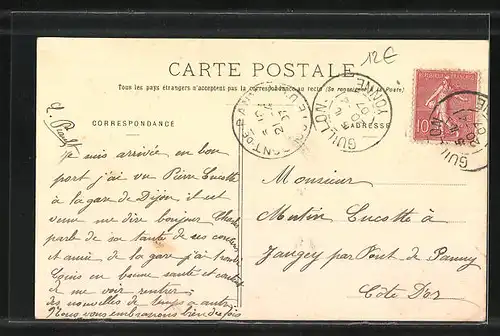 12€
CARTE POSTALE
Tous les pays étrangers n'acceptent pas la correspondance au recto (Se renseigner à la Poste)
CORRESPONDANCE
ADRESSE
RÉPUBLIQUE FRANÇAISE
10
GUILLON
YONNE
Je suis arrivée en bon
port j'ai vu Pierre Cucotte
à la gare de Dijon il est
venu me dire bonjour
parle de sa tante de ses
et amie, de la gare j'ai
tous en bonne santé et
de me voir rentrer
des nouvelles de temps à autre
Nous vous embrassons bien des fois
Monsieur
Martin Cucotte à
Jaugey par Pont de Panny
Côte D'or